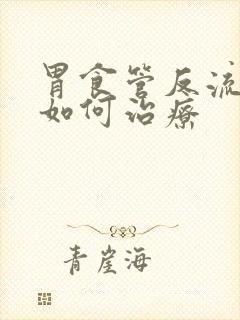 胃食管反流
如何治疗
青崖海